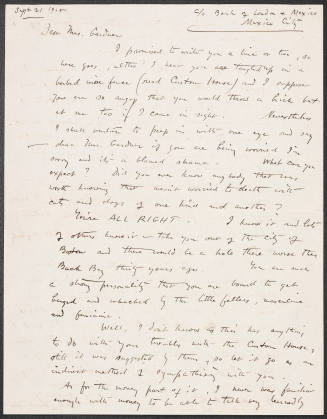 Sept 21, 19
c/o Bank of London & Mexico
Mexico City
Dear Mrs. Gardner
I promised to write you a line or two, so
here goes, altho' I hear you are tangled up in a
barbed wire fence (read Custom House) and I suppose
you are so angry that you would throw a brick bat
at me too if I came in sight. Nevertheless
I shall venture to peep in with one eye and say
dear Mrs. Gardner if you are being worried I'm
sorry and it's a blamed shame. What can you
expect? Did you ever know anybody that was
worth knowing that wasn't worried to death with
cats and dogs of one kind and another?
You're ALL RIGHT. I know it and lots
of others know it — take you out of the city of
Boston and there would be a hole there worse than
Back Bay thirty years ago. You are such
a strong personality that you are bound to get
banged and whacked by the little fellers, masculine
and feminine.
Well, I don't know as this has anything
to do with your troubles with the Custom House,
still it was suggested by them, so let it go as an
indirect method of sympathy with you.
As for the money part of it, I never was familiar
enough with money to be able to talk very learnedly